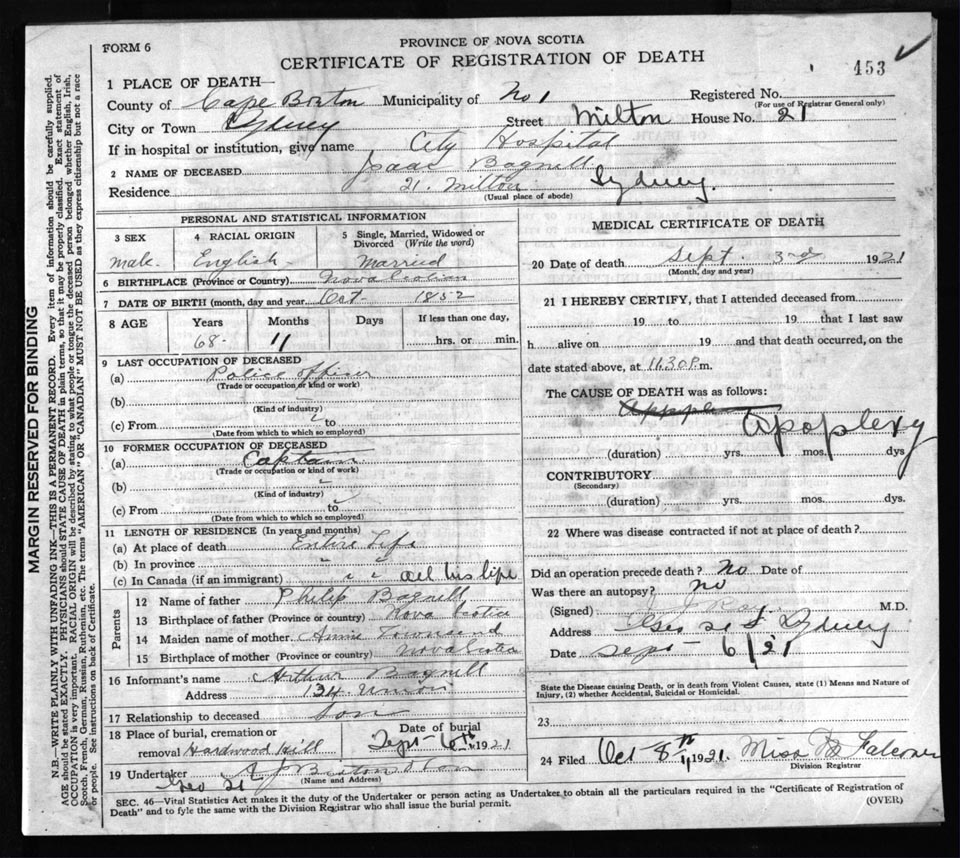 FORM 6
PROVINCE OF NOVA SCOTIA
CERTIFICATE OF REGISTRATION OF DEATH
453
1 PLACE OF DEATH—
Registered No.
(For use of Registrar General only)
County of Cape Breton Municipality of No 1
City or Town Sydney Street Milton House No. 21
If in hospital or institution, give name City Hospital
2 NAME OF DECEASED Isaac Bagnell
Residence 21. Milton Sydney.
(Usual place of abode)
PERSONAL AND STATISTICAL INFORMATION
3 SEX
male
4 RACIAL ORIGIN
English
5 Single, Married, Widowed or Divorced (Write the word)
Married
6 BIRTHPLACE (Province or Country) Nova Scotian
7 DATE OF BIRTH (month, day and year) Oct 1852
8 AGE Years Months Days If less than one day,
68 11 hrs. or min.
9 LAST OCCUPATION OF DECEASED
(a) Police officer
(Trade or occupation or kind of work)
(b)
(Kind of industry)
(c) From to
(Date from which to which so employed)
10 FORMER OCCUPATION OF DECEASED
(a) Captain
(Trade or occupation or kind of work)
(b)
(Kind of industry)
(c) From to
(Date from which to which so employed)
11 LENGTH OF RESIDENCE (In years and months)
(a) At place of death Entire Life
(b) In province " "
(c) In Canada (if an immigrant) " " all his life
Parents
12 Name of father Philip Bagnell
13 Birthplace of father (Province or country) Nova Scotia
14 Maiden name of mother Annie Townsend
15 Birthplace of mother (Province or Country) Nova Scotia
16 Informant's name Arthur Bagnell
Address 134 Union
17 Relationship to deceased Son
18 Place of burial, cremation or removal Hardwood Hill
Date of burial
Sept 6th 1921
19 Undertaker A J Beaton & Son
(Name and Address)
Geo St
MEDICAL CERTIFICATE OF DEATH
20 Date of death Sept. 3rd 1921
(Month, day and year)
21 I HEREBY CERTIFY, that I attended deceased from
19 to 19 that I last saw
h alive on 19 and that death occurred, on the
date stated above, at 11.30 P.m.
The CAUSE OF DEATH was as follows:
Apople
Apoplexy
(duration) yrs. mos. dys
CONTRIBUTORY
(Secondary)
(duration) yrs. mos. dys.
22 Where was disease contracted if not at place of death?
Did an operation precede death? No Date of
Was there an autopsy? no
(Signed) M.D.
Address Geo St Sydney
Date Sept 6/21
State the Disease causing Death, or in death from Violent Causes, state (1) Means and Nature of Injury, (2) whether Accidental, Suicidal or Homicidal.
23
24 Filed Oct 8th 1921. Miss Falconer
Division Registrar
SEC. 46—Vital Statistics Act makes it the duty of the Undertaker or person acting as Undertaker to obtain all the particulars required in the "Certificate of Registration of
Death" and to fyle the same with the Division Registrar who shall issue the burial permit.
(OVER)
MARGIN RESERVED FOR BINDING
N.B.—WRITE PLAINLY WITH UNFADING INK—THIS IS A PERMANENT RECORD. Every item of information should be carefully supplied.
AGE should be stated EXACTLY. PHYSICIANS should STATE CAUSE OF DEATH in plain terms, so that it may be properly classified. Exact statement of
OCCUPATION is very important. RACIAL ORIGIN will be described by stating to what people or tongue the deceased person belonged, whether English, Irish,
Scotch, French, German, Russian, Ruthenian, etc. The terms "AMERICAN" OR "CANADIAN" MUST NOT BE USED as they express citizenship but not a race
or people. See instructions on back of Certificate.